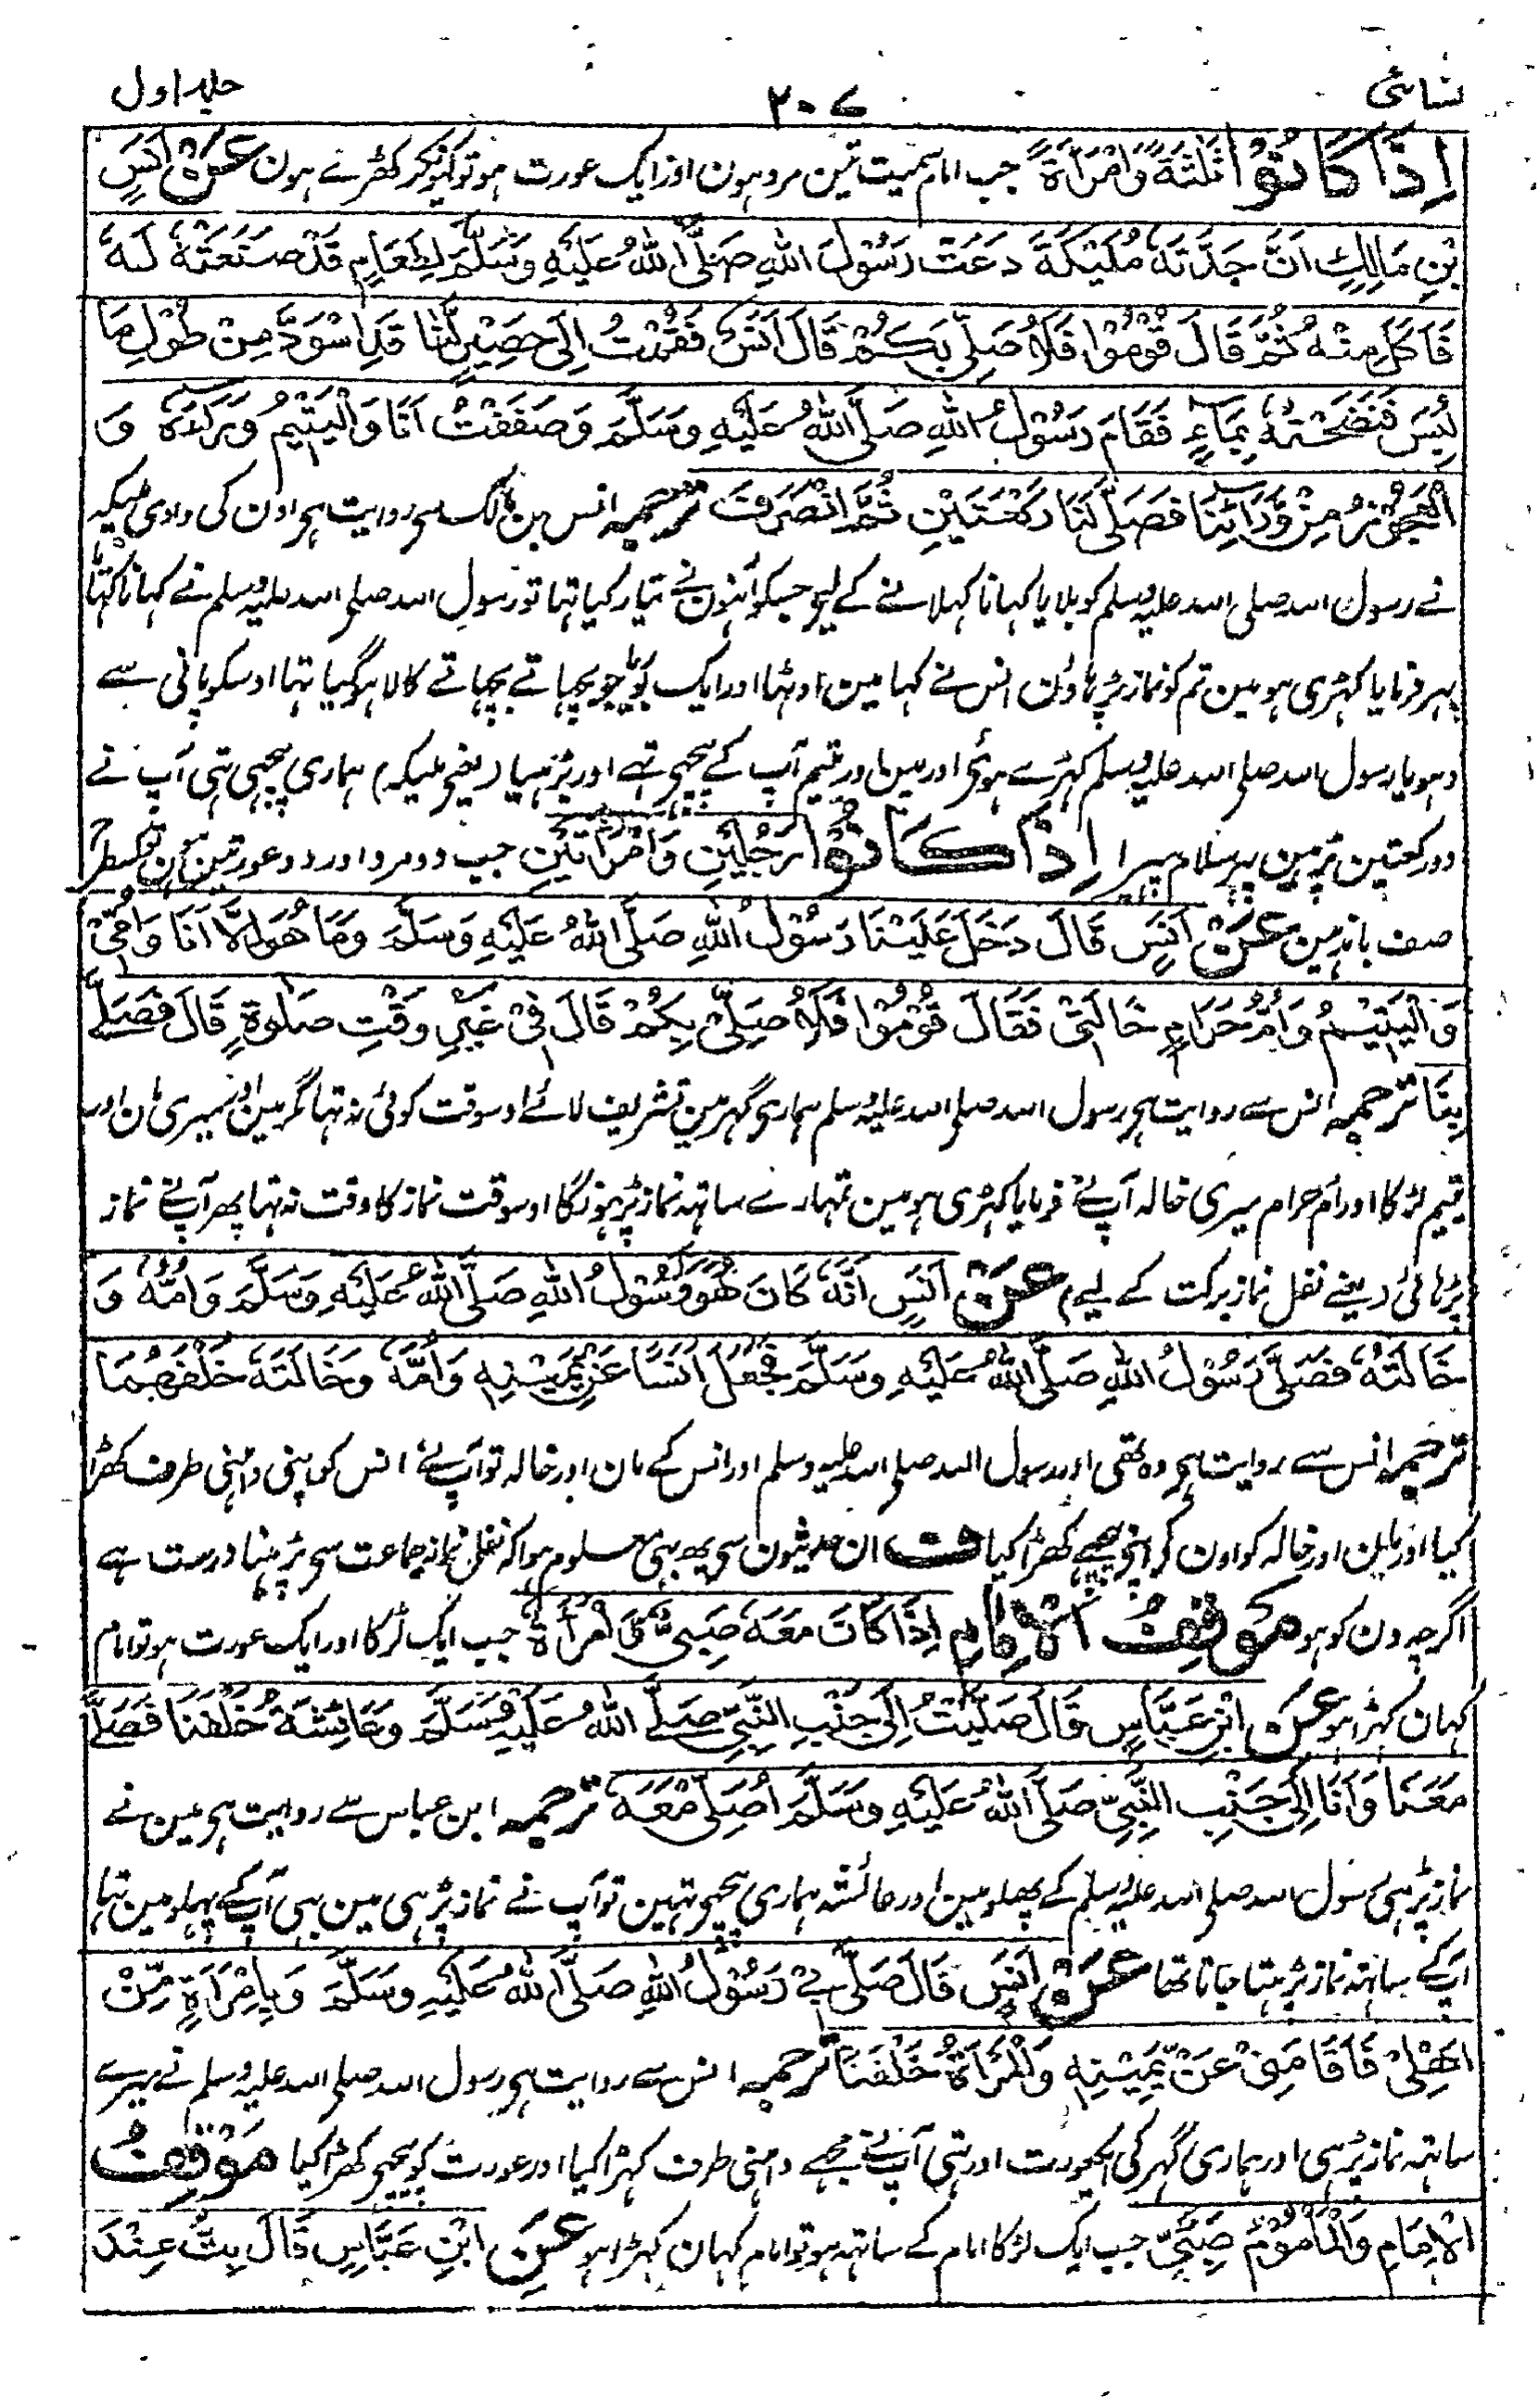 نسائی ۲۰۷ جلد اول
اِذَا كَانُوْا ثَلٰثَةً وَّامْرَاَةً جب امام سمیت تین مرد ہون اور ایک عورت ہو تو کیونکر کھڑے ہون عَنْ اَنَسِ
بْنِ مَالِكٍ اَنَّ جَدَّتَهٗ مُلَيْكَةَ دَعَتْ رَسُوْلَ اللهِ صَلَّى اللهُ عَلَيْهِ وَسَلَّمَ لِطَعَامٍ قَدْ صَنَعَتْهُ لَهٗ
فَاَكَلَ مِنْهُ ثُمَّ قَالَ قُوْمُوْا فَلِاُصَلِّيَ بِكُمْ قَالَ اَنَسٌ فَقُمْتُ اِلٰى حَصِيْرٍ لَّنَا قَدِ اسْوَدَّ مِنْ طُوْلِ مَا
لُبِسَ فَنَضَحْتُهٗ بِمَاءٍ فَقَامَ رَسُوْلُ اللهِ صَلَّى اللهُ عَلَيْهِ وَسَلَّمَ وَصَفَفْتُ اَنَا وَالْيَتِيْمُ وَرَاءَهٗ وَ
الْعَجُوْزُ مِنْ وَّرَائِنَا فَصَلّٰى لَنَا رَكْعَتَيْنِ ثُمَّ انْصَرَفَ ترجمہ انس بن مالک سے روایت ہی اون کی دادی ملیکہ
نے رسول اللہ صلی اللہ علیہ وسلم کو بلایا کہانا کہلانے کے لیے جسکو اُنہون نے تیار کیا تہا تو رسول اللہ صلی اللہ علیہ وسلم نے کہانا کہایا
پہر فرمایا کہڑی ہو مین تم کو نماز پڑہاؤن انس نے کہا مین اوٹہا اور ایک بوریا جو بچہاتے بچہاتے کالا ہو گیا تہا اوسکو پانی سے
دہویا رسول اللہ صلی اللہ علیہ وسلم کہڑے ہوئے اور مین اور یتیم آپ کے پیچہے تہے اور بڑہیا (یعنی ملیکہ) ہماری پیچہے تہی آپ نے
دو رکعتین پڑہین پہر سلام پہیرا اِذَا كَانُوْا رَجُلَيْنِ وَامْرَاَتَيْنِ جب دو مرد اور دو عورتین ہون تو کسطرح
صف باندہین عَنْ اَنَسٍ قَالَ دَخَلَ عَلَيْنَا رَسُوْلُ اللهِ صَلَّى اللهُ عَلَيْهِ وَسَلَّمَ وَمَا هُوَ اِلَّا اَنَا وَاُمِّيْ
وَالْيَتِيْمُ وَاُمُّ حَرَامٍ خَالَتِيْ فَقَالَ قُوْمُوْا فَلِاُصَلِّيَ بِكُمْ قَالَ فِيْ غَيْرِ وَقْتِ صَلٰوةٍ قَالَ فَصَلّٰى
بِنَا ترجمہ انس سے روایت ہی رسول اللہ صلی اللہ علیہ وسلم ہماری گہر مین تشریف لائے اوسوقت کوئی نہ تہا مگر مین اور میری مان اور
یتیم لڑکا اور ام حرام میری خالہ آپ نے فرمایا کہڑی ہو مین تمہارے ساتہہ نماز پڑہونگا اوسوقت نماز کا وقت نہ تہا پہر آپ نے نماز
پڑہائی (یعنے نفل نماز برکت کے لیے) عَنْ اَنَسٍ اَنَّهٗ كَانَ هُوَ وَرَسُوْلُ اللهِ صَلَّى اللهُ عَلَيْهِ وَسَلَّمَ وَاُمُّهٗ وَ
خَالَتُهٗ فَصَلّٰى رَسُوْلُ اللهِ صَلَّى اللهُ عَلَيْهِ وَسَلَّمَ فَجَعَلَ اَنَسًا عَنْ يَّمِيْنِهٖ وَاُمَّهٗ وَخَالَتَهٗ خَلْفَهُمَا
ترجمہ انس سے روایت ہی وہ تھی اور رسول اللہ صلی اللہ علیہ وسلم اور انس کے مان اور خالہ تو آپ نے انس کو اپنی داہنی طرف کھڑا
کیا اور مان اور خالہ کو اون کو اپنی پیچہے کھڑا کیا ف ان حدیثون سے یہ بہی معلوم ہوا کہ نفل نماز جماعت سے پڑہنا درست ہے
اگرچہ دن کو ہو مَوْقِفُ الْاِمَامِ اِذَا كَانَ مَعَهٗ صَبِيٌّ وَّامْرَاَةٌ جب ایک لڑکا اور ایک عورت ہو تو امام
کہان کہڑا ہو عَنِ ابْنِ عَبَّاسٍ قَالَ صَلَّيْتُ اِلٰى جَنْبِ النَّبِيِّ صَلَّى اللهُ عَلَيْهِ وَسَلَّمَ وَعَائِشَةُ خَلْفَنَا فَصَلّٰى
مَعَنَا وَاَنَا اِلٰى جَنْبِ النَّبِيِّ صَلَّى اللهُ عَلَيْهِ وَسَلَّمَ اُصَلِّيْ مَعَهٗ ترجمہ ابن عباس سے روایت ہی مین نے
نماز پڑہی رسول اللہ صلی اللہ علیہ وسلم کے پہلو مین اور عائشہ ہماری پیچہے تہین تو آپ نے نماز پڑہی مین بہی آپ کے پہلو مین تہا
آپ کے ساتہہ نماز پڑہتا جاتا تھا عَنْ اَنَسٍ قَالَ صَلّٰى بِيْ رَسُوْلُ اللهِ صَلَّى اللهُ عَلَيْهِ وَسَلَّمَ وَبِامْرَاَةٍ مِّنْ
اَهْلِيْ فَاَقَامَنِيْ عَنْ يَّمِيْنِهٖ وَالْمَرْاَةُ خَلْفَنَا ترجمہ انس سے روایت ہی رسول اللہ صلی اللہ علیہ وسلم نے میرے
ساتہہ نماز پڑہی اور ہماری گہر کی ایکعورت اور تہی آپ نے مجہے داہنی طرف کہڑا کیا اور عورت کو پیچہے کھڑا کیا مَوْقِفُ
الْاِمَامِ وَالْمَامُوْمُ صَبِيٌّ جب ایک لڑکا امام کے ساتہہ ہو تو امام کہان کہڑا ہو عَنِ ابْنِ عَبَّاسٍ قَالَ بِتُّ عِنْدَ